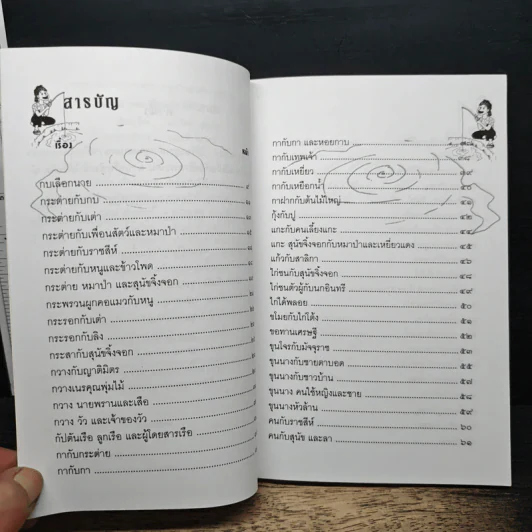 สารบัญ
เรื่อง
หน้า
กบเลือกนาย
กระต่ายกับกบ
กระต่ายกับเต่า
กระต่ายกับเพื่อนสัตว์และหมาป่า
กระต่ายกับราชสีห์
กระต่ายกับหนูและข้าวโพด
กระต่าย หมาป่า และสุนัขจิ้งจอก
กระพรวนผูกคอแมวกับหนู
กระรอกกับเต่า
กระรอกกับลิง
กระสากับสุนัขจิ้งจอก
กวางกับญาติมิตร
กวางเนรคุณพุ่มไม้
กวาง นายพรานและเสือ
กวาง วัว และเจ้าของวัว
กัปตันเรือ ลูกเรือ และผู้โดยสารเรือ
กากับกระต่าย
กากับกา
กากับกา และหอยกาบ
กากับเทพเจ้า
กากับเหยี่ยว ๓๙
กากับเหยือกน้ำ ๔๐
กาฝากกับต้นไม้ใหญ่ ๔๑
กุ้งกับปู ๔๒
แกะกับคนเลี้ยงแกะ ๔๔
แกะ สุนัขจิ้งจอกกับหมาป่าและเหยี่ยวแดง ๔๕
แก้วกับสาลิกา ๔๖
ไก่ชนกับสุนัขจิ้งจอก ๔๘
ไก่ชนตัวผู้กับนกอินทรี ๔๙
ไก่ได้พลอย ๕๐
ขโมยกับไก่โต้ง ๕๑
ขอทานเศรษฐี ๕๒
ขุนโจรกับมัจจุราช ๕๓
ขุนนางกับชายตาบอด ๕๕
ขุนนางกับชาวบ้าน ๕๗
ขุนนาง คนใช้หญิงและชาย ๕๘
ขุนนางหัวล้าน ๕๙
คนกับราชสีห์ ๖๐
คนกับสุนัข และลา ๖๑